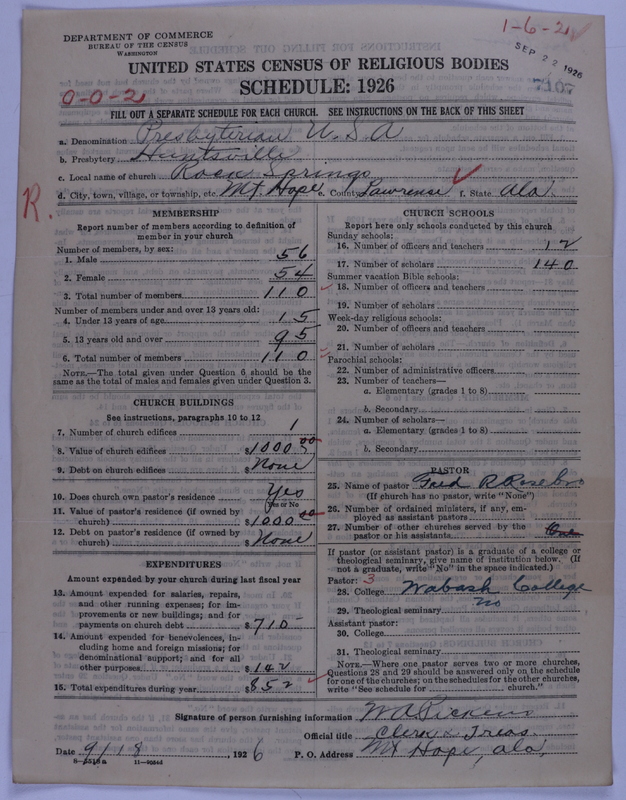 DEPARTMENT OF COMMERCE
BUREAU OF THE CENSUS
WASHINGTON
1-6-2
SEP 22 1926
7107
UNITED STATES CENSUS OF RELIGIOUS BODIES
SCHEDULE: 1926
0-0-2
FILL OUT A SEPARATE SCHEDULE FOR EACH CHURCH. SEE INSTRUCTIONS ON THE BACK OF THIS SHEET
a. Denomination Presbyterian U.S.A
b. Presbytery Huntsville
c. Local name of church Rock Springs
d. City, town, village, or township, etc. Mt. Hope e. County Lawrense f. State Ala.
R.
MEMBERSHIP
Report number of members according to definition of member in your church
Number of members, by sex:
1. Male 56
2. Female 54
3. Total number of members 110
Number of members under and over 13 years old:
4. Under 13 years of age 15
5. 13 years old and over 95
6. Total number of members 110
NOTE.—The total given under Question 6 should be the
same as the total of males and females given under Question 3.
CHURCH BUILDINGS
See instructions, paragraphs 10 to 12
7. Number of church edifices 1
8. Value of church edifices $1000 00
9. Debt on church edifices $None
10. Does church own pastor's residence Yes
(Yes or No)
11. Value of pastor's residence (if owned by
church) $1000 00
12. Debt on pastor's residence (if owned by
church) $None
EXPENDITURES
Amount expended by your church during last fiscal year
13. Amount expended for salaries, repairs,
and other running expenses; for im-
provements or new buildings; and for
payments on church debt $710
14. Amount expended for benevolences, in-
cluding home and foreign missions; for
denominational support; and for all
other purposes $142
15. Total expenditures during year $852
CHURCH SCHOOLS
Report here only schools conducted by this church
Sunday schools:
16. Number of officers and teachers 12
17. Number of scholars 140
Summer vacation Bible schools:
18. Number of officers and teachers
19. Number of scholars
Week-day religious schools:
20. Number of officers and teachers
21. Number of scholars
Parochial schools:
22. Number of administrative officers
23. Number of teachers—
a. Elementary (grades 1 to 8)
b. Secondary
24. Number of scholars—
a. Elementary (grades 1 to 8)
b. Secondary
PASTOR
25. Name of pastor Fred R Rosebro
(If church has no pastor, write "None")
26. Number of ordained ministers, if any, em-
ployed as assistant pastors
27. Number of other churches served by the
pastor or his assistants
If pastor (or assistant pastor) is a graduate of a college or
theological seminary, give name of institution below. (If
not a graduate, write "No" in the space indicated.)
Pastor: 3
28. College Wabash College
29. Theological seminary no
Assistant pastor:
30. College
31. Theological seminary
NOTE.—Where one pastor serves two or more churches,
Questions 28 and 29 should be answered only on the schedule
for one of the churches; on the schedules for the other churches,
write "See schedule for church."
Signature of person furnishing information W A Pickens
Official title Clerk & Treas
Date 9/18, 1926 P. O. Address Mt Hope, Ala,
8-5518a 11-9054d